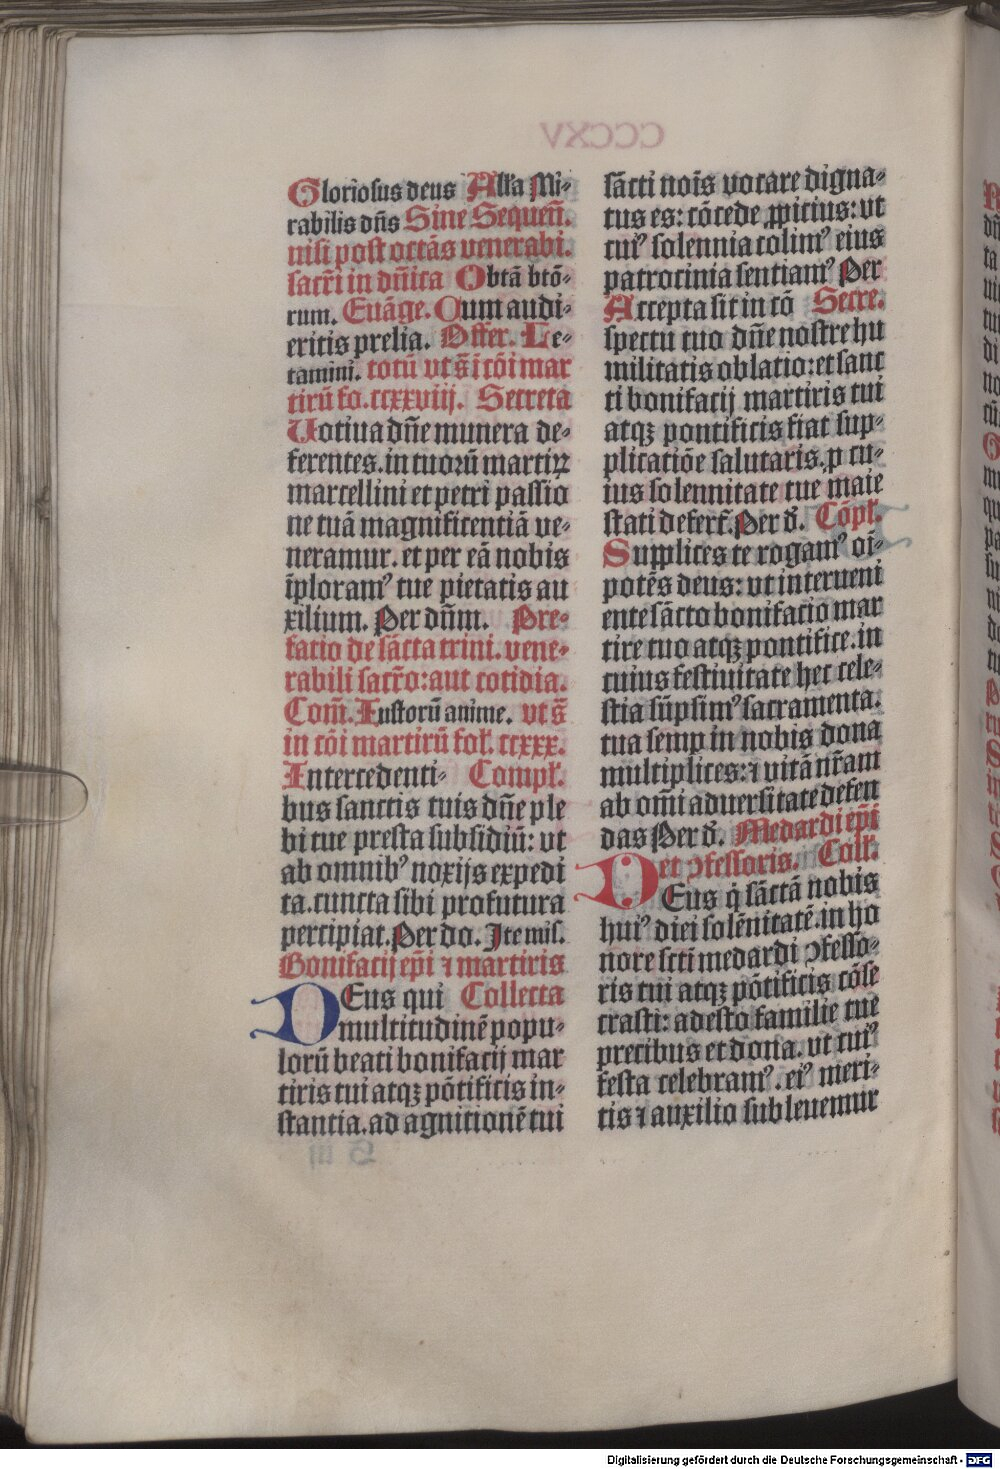 Gloriosus deus All'a Mi-
rabilis dñs Sine Sequeñ.
nisi post octãs venerabi.
sacrĩ in dñica Obtã btõ-
rum. Evãge. Cum audi-
eritis prelia. Offer. Le-
tamini. totũ vt s̃ i cõi mar
tirũ fo. ccxxviij. Secreta
Uotiua dñe munera de-
ferentes. in tuorũ martiꝝ
marcellini et petri passio
ne tuã magnificentiã ve-
neramur. et per eã nobis
ĩploramꝰ tue pietatis au
xilium. Per dñm. Pre-
fatio de sãcta trini. vene-
rabili sacr̃o: aut cotidia.
Com̃. Iustorũ anime. vt s̃
in cõi martirũ fol. ccxxx.
Intercedenti- Compl.
bus sanctis tuis dñe ple
bi tue presta subsidiũ: vt
ab omnibꝰ noxijs expedi
ta. cuncta sibi profutura
percipiat. Per do. Ite mis.
Bonifacij ep̃i ⁊ martiris
DEus qui Collecta
multitudinẽ popu-
lorũ beati bonifacij mar
tiris tui atqꝫ põtificis in-
stantia. ad agnitionẽ tui
sãcti nois̃ vocare digna-
tus es: cõcede ꝓpicius: vt
cuiꝰ solennia colimꝰ eius
patrocinia sentiamꝰ Per
Accepta sit in cõ Secre.
spectu tuo dñe nostre hu
militatis oblatio: et sanc
ti bonifacij martiris tui
atqꝫ pontificis fiat sup-
plicatiõe salutaris. ꝑ cu-
ius solennitate tue maie
stati defert̃. Per d̃. Cõpl.
Supplices te rogamꝰ oi-
potẽs deus: vt interueni
ente sãcto bonifacio mar
tire tuo atqꝫ pontifice. in
cuius festiuitate hec cele-
stia sũpsimꝰ sacramenta.
tua semp in nobis dona
multiplices: ⁊ vitã nr̃am
ab om̃i aduersitate defen
das Per d̃. Medardi ep̃i
et ꝯfessoris. Coll.
DEus q̇ sãctã nobis
huiꝰ diei solẽnitatẽ. in ho
nore scti medardi ꝯfesso-
ris tui atqꝫ põtificis cõse
crasti: adesto familie tue
precibus et dona. vt cuiꝰ
festa celebramꝰ. eiꝰ meri-
tis ⁊ auxilio subleuemur
Digitalisierung gefördert durch die Deutsche Forschungsgemeinschaft - DFG